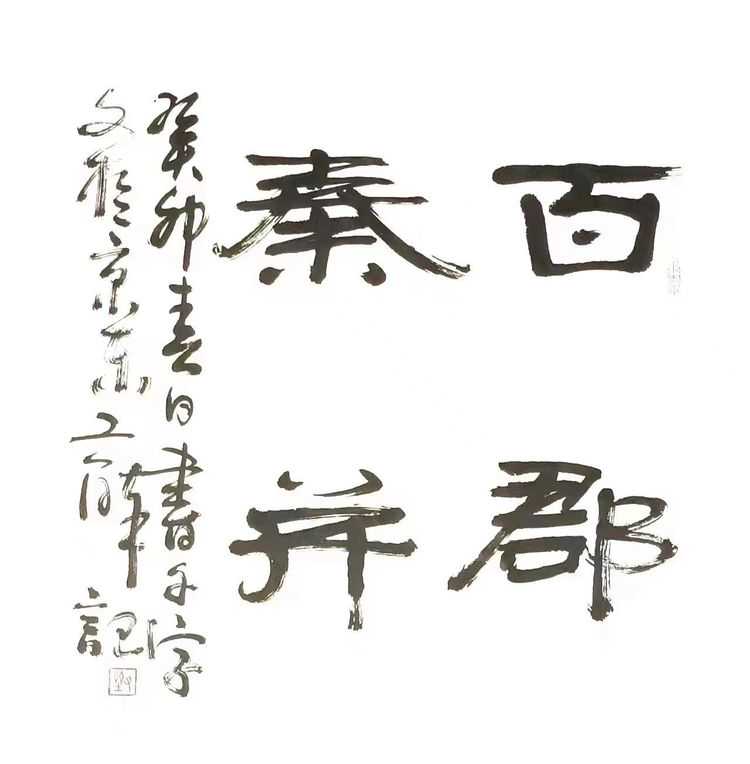 百郡
秦并
癸卯春日書千字
文於京東工作
記